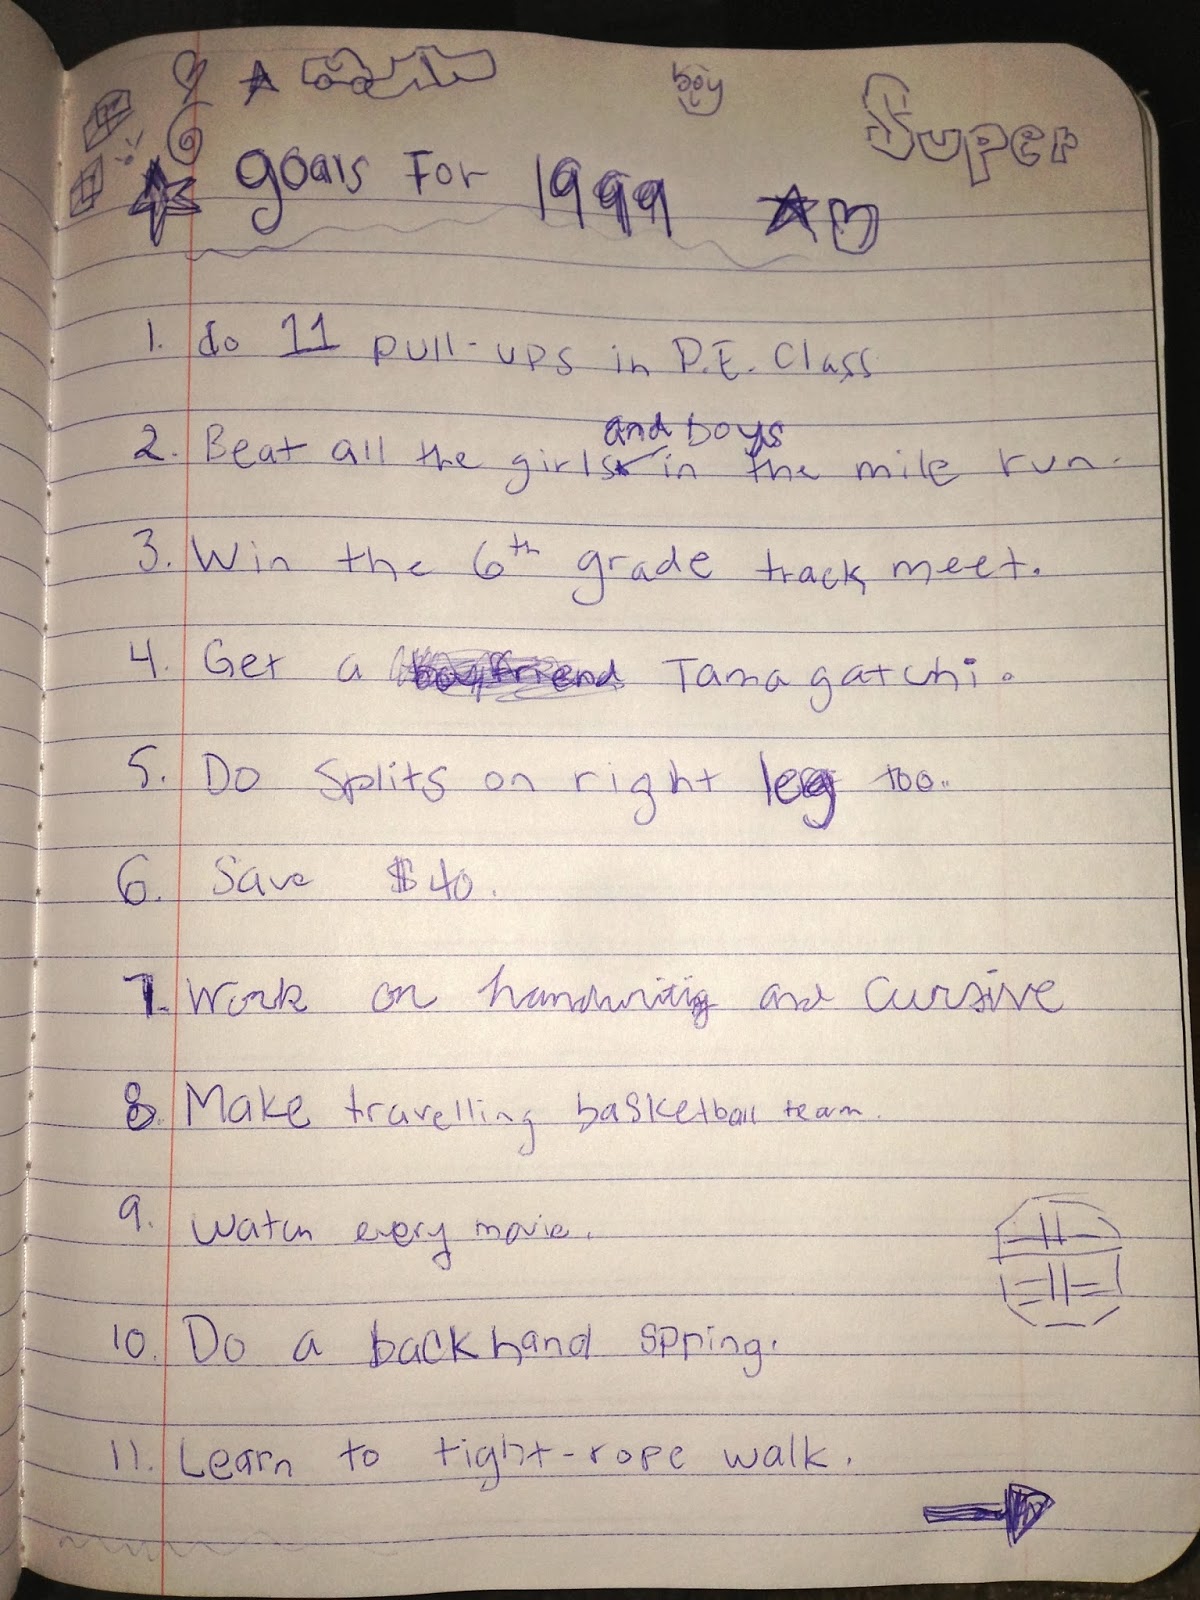 boy
Super
goals For 1999
1. do 11 pull-ups in P.E. Class
and boys
2. Beat all the girls in the mile run.
3. Win the 6th grade track meet.
4. Get a boyfriend Tamagatchi.
5. Do splits on right leg too.
6. Save $40.
7. Work on handwriting and cursive
8. Make travelling basketball team.
9. Watch every movie.
10. Do a backhand spring.
11. Learn to tight-rope walk.